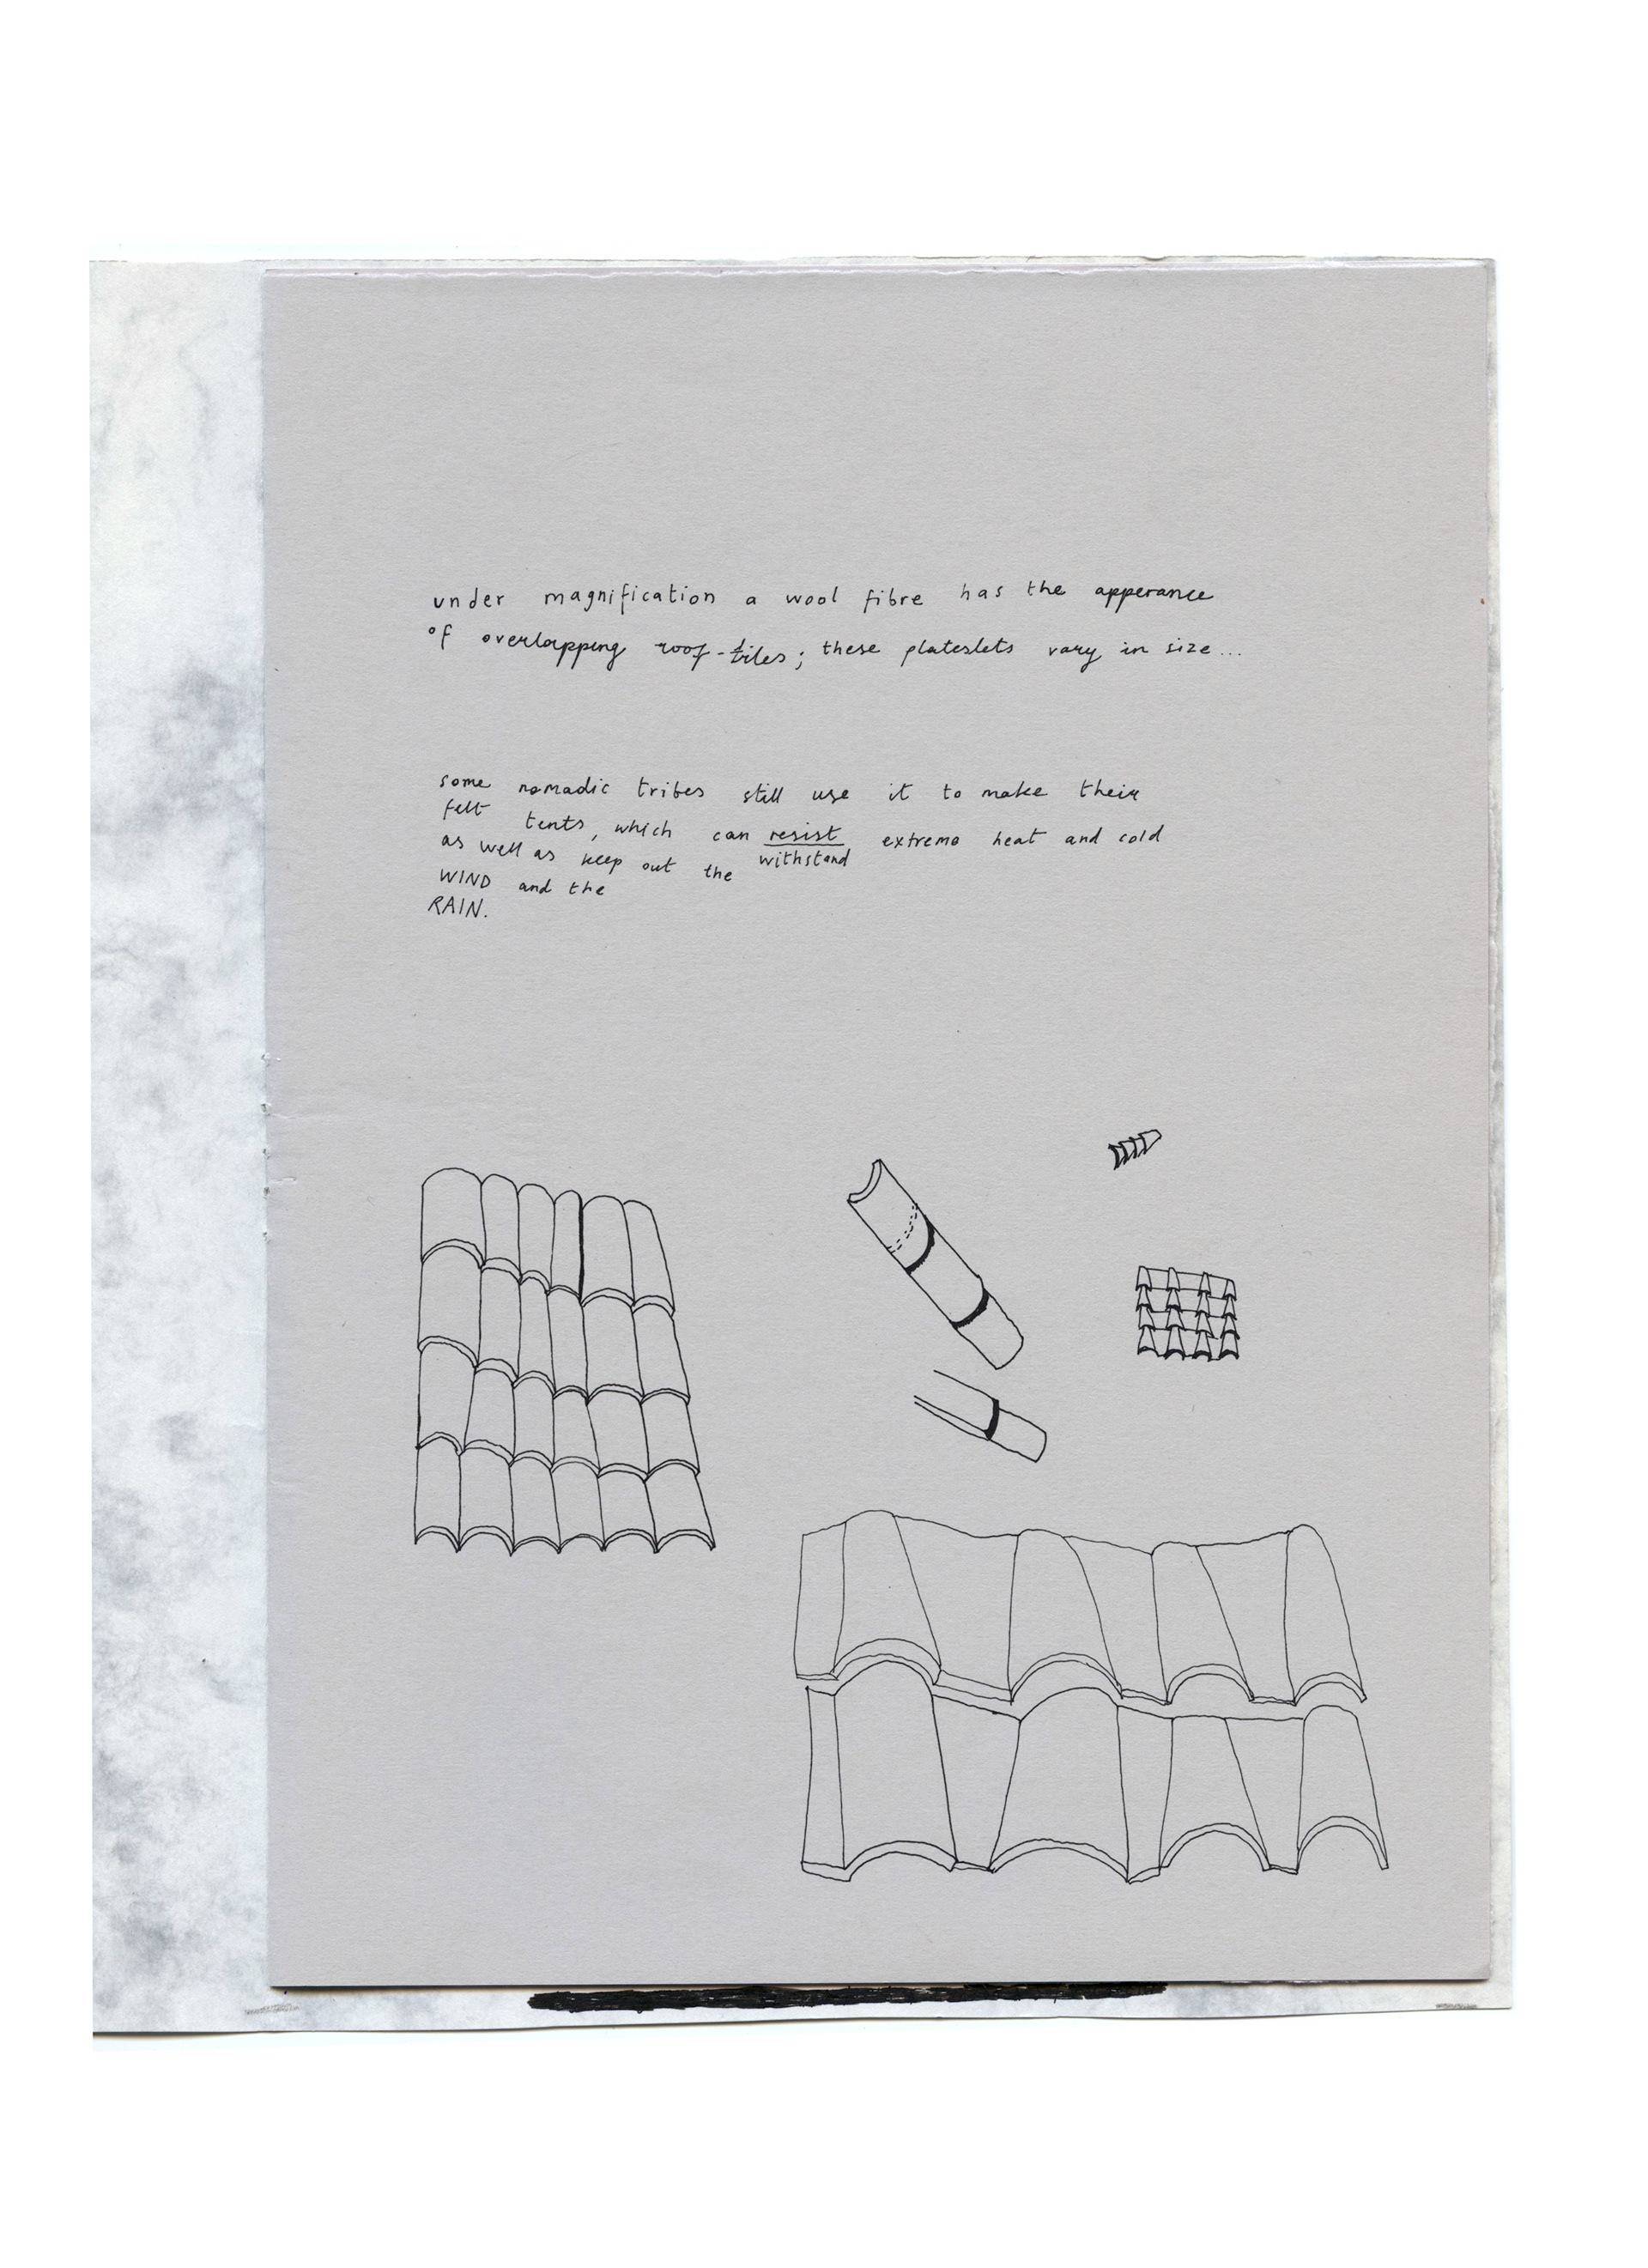 under magnification a wool fibre has the apperance
of overlapping roof-tiles; these plateslets vary in size...
some nomadic tribes still use it to make their
felt tents, which can resist extreme heat and cold
withstand
as well as keep out the
WIND and the
RAIN.